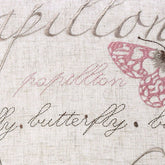 papillon
papillon
ly. butterfly. b